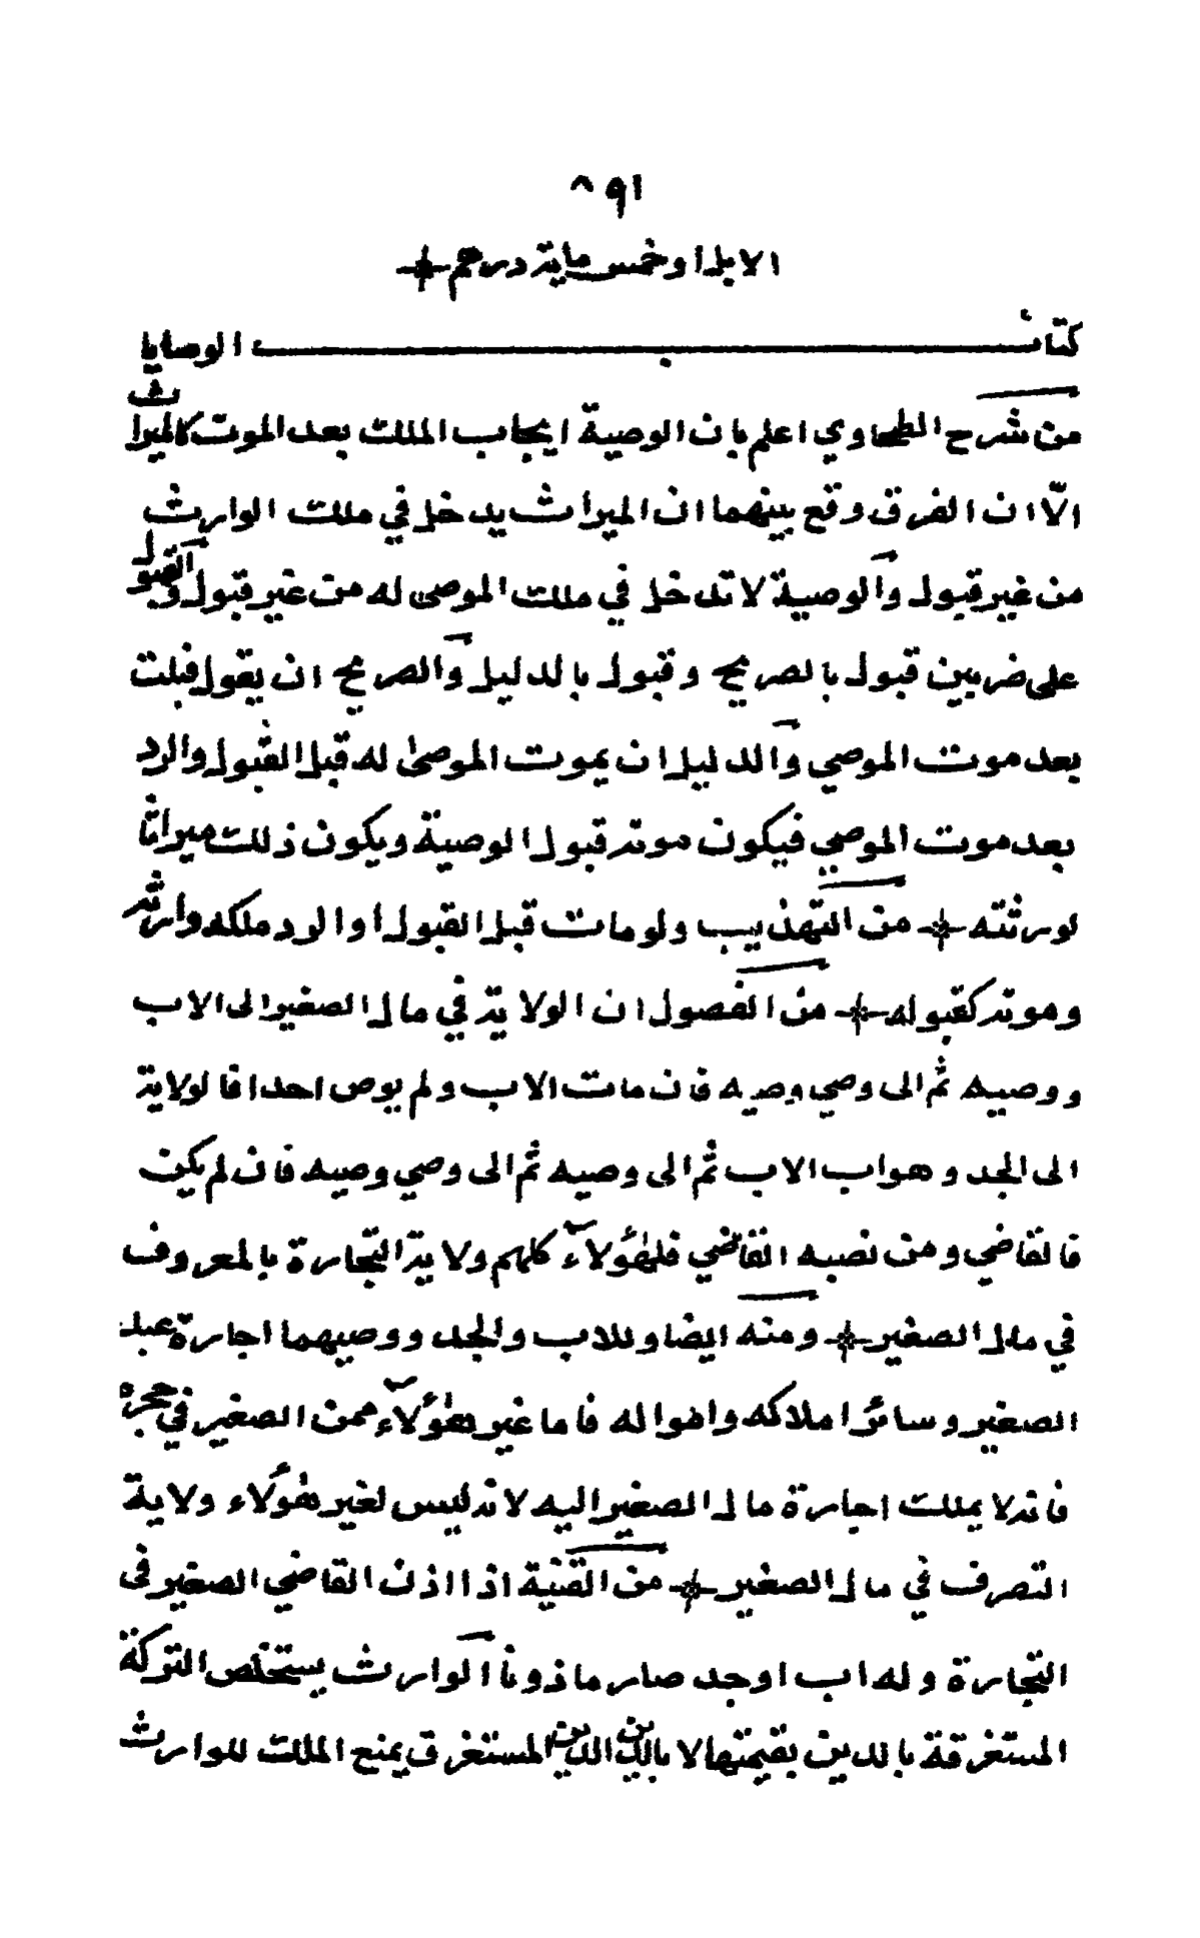 ٨٩١
الابل او خمس ماية درهم
كتاب الوصايا
من شرح الطحاوي اعلم بان الوصية ايجاب الملك بعد الموت كالميراث
الّا ان الفرق وقع بينهما ان الميراث يدخل في ملك الوارث
من غير قبول والوصية لا تدخل في ملك الموصى له من غير قبول والقبول
على ضربين قبول بالصريح وقبول بالدليل والصريح ان يقول قبلت
بعد موت الموصي والدليل ان يموت الموصىٰ له قبل القبول والرد
بعد موت الموصي فيكون موته قبول الوصية ويكون ذلك ميراثا
لورثته من التهذيب ولو مات قبل القبول او الرد ملكه وارثه
وموته كقبوله من الفصول ان الولاية في مال الصغير الى الاب
ووصيه ثم الى وصي وصيه فان مات الاب ولم يوص احدا فالولاية
الى الجد وهو اب الاب ثم الى وصيه ثم الى وصي وصيه فان لم يكن
فالقاضي ومن نصبه القاضي فلهٰؤلآء كلهم ولاية التجارة بالمعروف
في مال الصغير ومنه ايضا وللاب والجد ووصيهما اجارة عبد
الصغير وسائر املاكه وامواله فاما غير هٰؤلآء ممن الصغير في حجره
فانه لا يملك اجارة مال الصغير اليه لانه ليس لغير هٰؤلاء ولاية
التصرف في مال الصغير من القنية اذا اذن القاضي الصغير فى
التجارة وله اب او جد صار ماذونا الوارث يستخلص التركة
المستغرقة بالدين بقيمتها لا بالدين الدين المستغرق يمنع الملك للوارث